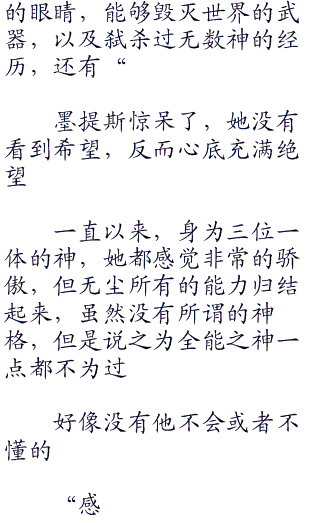 的眼睛，能够毁灭世界的武
器，以及弑杀过无数神的经
历，还有“
墨提斯惊呆了，她没有
看到希望，反而心底充满绝
望
一直以来，身为三位一
体的神，她都感觉非常的骄
傲，但无尘所有的能力归结
起来，虽然没有所谓的神
格，但是说之为全能之神一
点都不为过
好像没有他不会或者不
懂的
“感